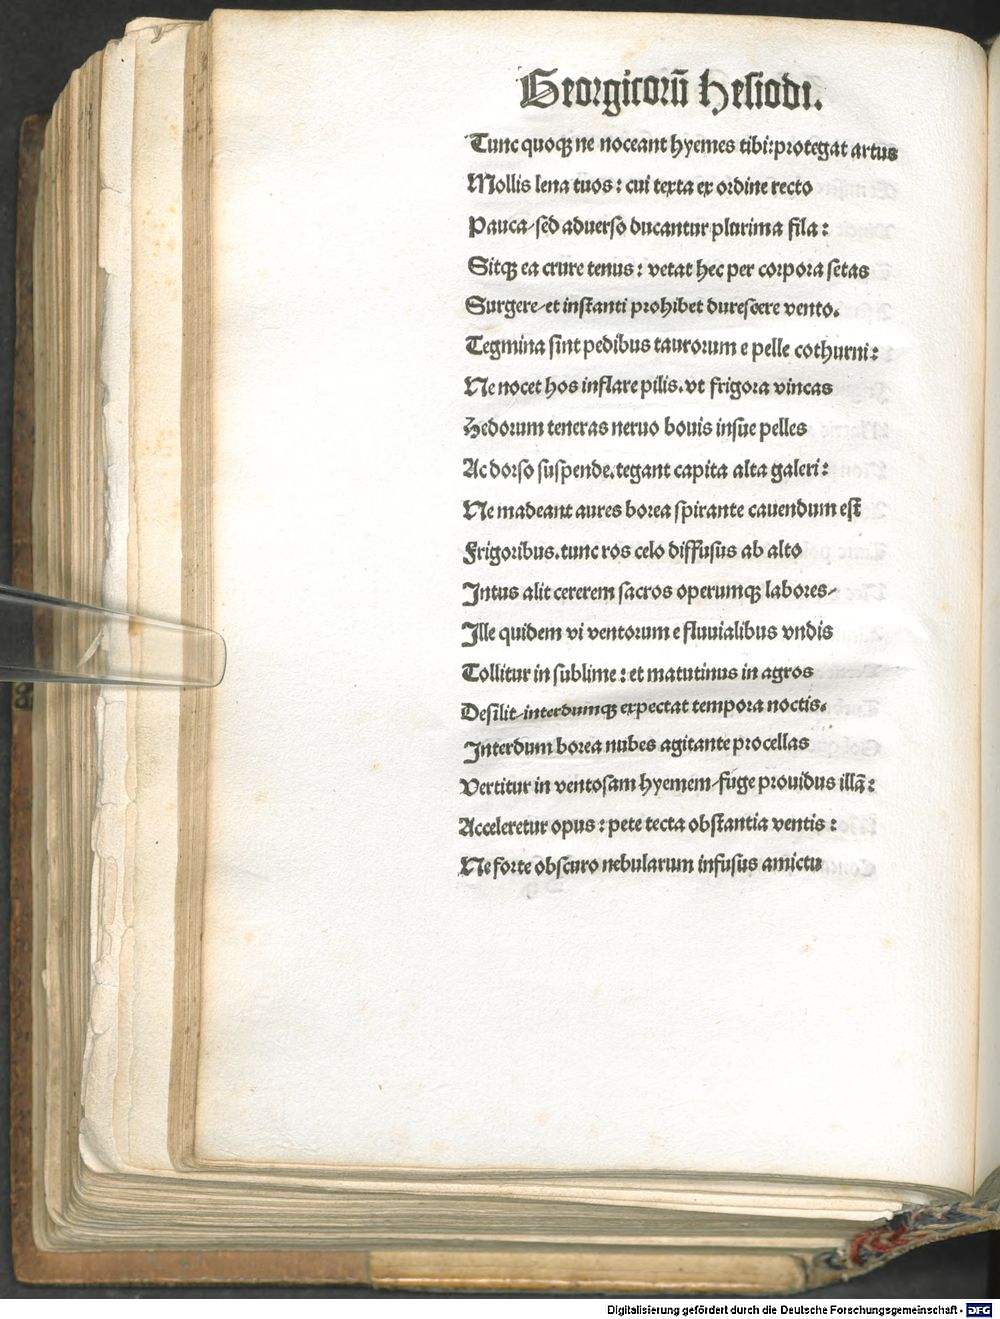 Georgicorũ Hesiodi.
Tunc quoqꝫ ne noceant hyemes tibi: protegat artus
Mollis lena tuos: cui texta ex ordine recto
Pauca/ sed aduerso ducantur plurima fila:
Sitqꝫ ea crure tenus: vetat hec per corpora setas
Surgere/ et instanti prohibet durescere vento.
Tegmina sint pedibus taurorum e pelle cothurni:
Ne nocet hos inflare pilis. vt frigora vincas
Hedorum teneras neruo bouis insue pelles
Ac dorso suspende. tegant capita alta galeri:
Ne madeant aures borea spirante cauendum est
Frigoribus. tunc ros celo diffusus ab alto
Intus alit cererem sacros operumqꝫ labores/
Ille quidem vi ventorum e fluuialibus vndis
Tollitur in sublime: et matutinus in agros
Desilit/ interdumqꝫ expectat tempora noctis.
Interdum borea nubes agitante procellas
Vertitur in ventosam hyemem/ fuge prouidus illã:
Acceleretur opus: pete tecta obstantia ventis:
Ne forte obscuro nebularum infusus amictu
Digitalisierung gefördert durch die Deutsche Forschungsgemeinschaft - DFG